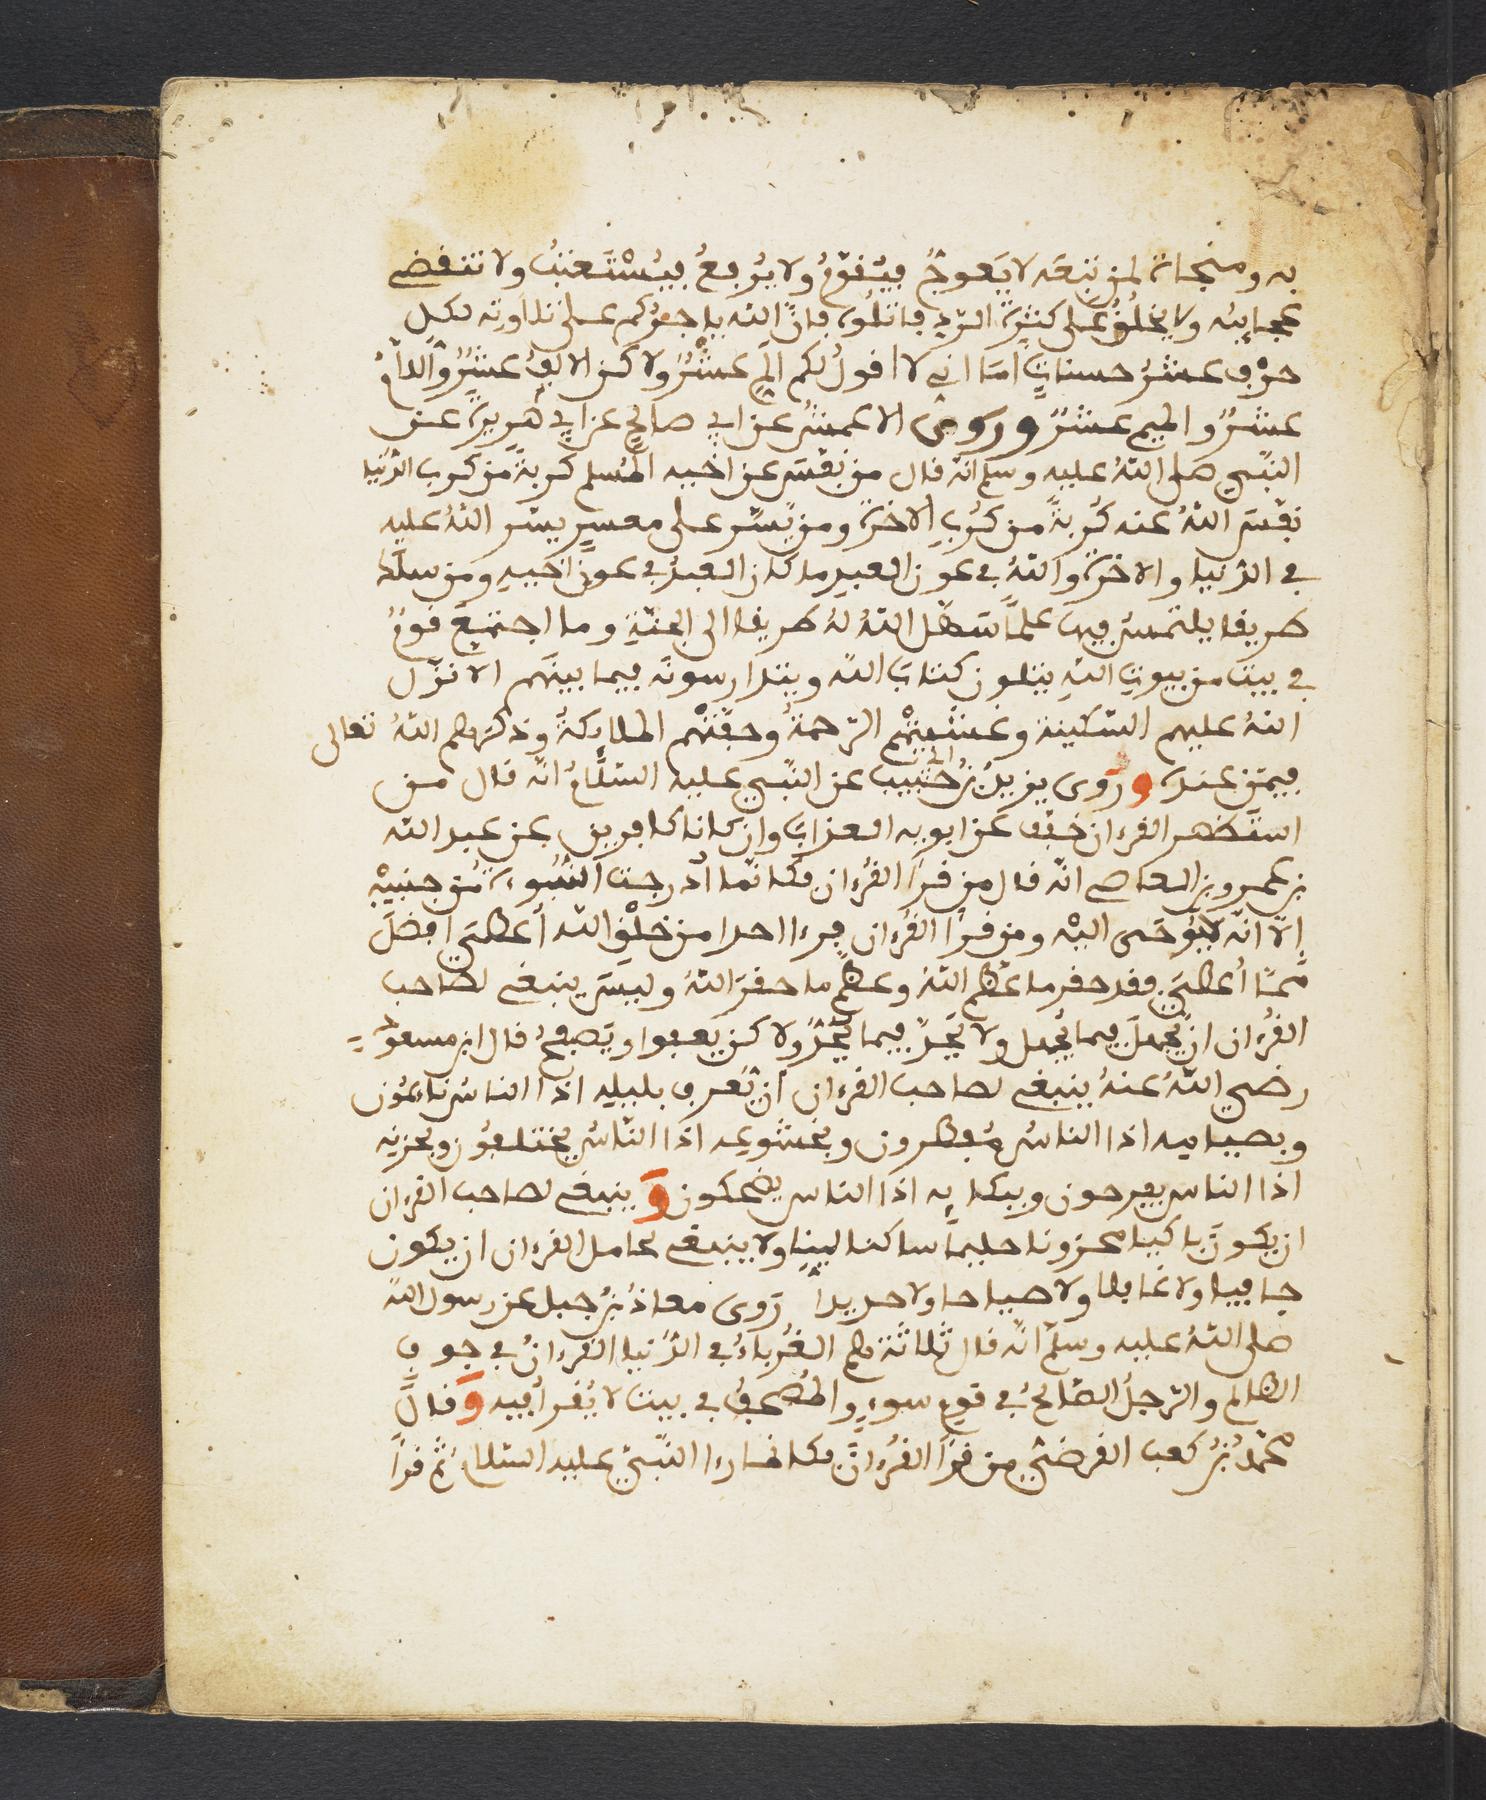 به ومنجاة لمن تبعه لا يَعوجُّ فيُقوَّمُ ولا يزيغُ فيُسْتَعتبُ ولا تنقضي
عجايبُه ولا يخلُقُ على كثرة الردّ فاتلُوه فانّ الله ياجرُكم على تلاوته لكلِ
حرْفٍ عشرُ حسناتٍ اما اني لا اقولُ لكم الم عشْرُ ولاكن الالفُ عشْرٌ واللامُ
عشْرٌ والميم عشرٌ وروى الاعمشُ عن ابي صالح عن ابي هريرة عن
النّبيِ صلى اللهُ عليه وسلم انّه قال من نفّسَ عن اخيه المُسلم كربةً من كرب الدّنيا
نفّسَ اللهُ عنه كُربةً من كُرَبِ الاخرة ومن يسّر على معسرٍ يسّر اللهُ عليه
في الدّنيا والاخرة واللهُ في عون العبدِ ما كان العبدُ في عون اخيهِ ومن سلك
طريقا يلتمسُ فيه علمًا سَهّل اللهُ لهُ طريقا الى الجنّةِ وما اجتمعَ قومٌ
في بيت من بيوتِ اللهِ يتلون كتابَ الله ويتدارسونَه فيما بينَهم الا نزّل
اللهُ عليهم السّكينة وغشّيتْهم الرّحمةُ وحفّتْهم الملايكةُ وذكرَهم اللهُ تعالى
فيمَن عنده وروى يزيدُ بنُ حبيب عن النّبيِ عليه السّلامُ انّه قال من
استَظهر القرءان خفّف عن ابويه العذابَ وان كانا كافرين عن عبد الله
بن عمرو بن العاصي انّه قال من قرأ القُرءان فكانّما أدرجت النّبُوءة بين جنبيْهِ
إلّا انّه لا يُوحَى اليْه ومن قرأ القُرءان فرءا احدا من خلْق الله أعطيَ افضلَ
ممّا أعطيَ فقد حقر ما عظّم اللهُ وعظّم ما حقرَ اللهُ وليسَ ينبغي لصاحب
القُرءان ان يجهلَ فيما يُجهل ولا يَحِدّ فيما يُحدّ ولاكن يعفوا ويَصفحُ قال ابن مسعود
رضي اللهُ عنهُ ينبغي لصاحب القرءان أن يُعرف بليلِه اذا الناسُ نايمُون
وبصيامِه اذا الناسُ مُفطرون وبخُشوعِه اذا النّاسُ يختلفُون وبحزنِه
اذا الناس يفرحون وببكايِه اذا الناس يضحكون وَينبغي لصاحب القرءان
ان يكونَ باكيا محزونا حليمًا ساكنا ليّنا ولا ينبغي لحامل القرءان ان يكون
جافيا ولا غافلا ولا صياحا ولا حديدا رَوى معاذُ بنُ جبل عن رسول اللهِ
صلى اللهُ عليه وسلّم انّه قال ثلاثَة هم الغُرباءُ في الدّنيا القرءانُ في جوفِ
الظالم والرّجلُ الصّالحُ في قومِ سوءٍ والمُصحفُ في بيت لا يُقرأُ فيه وَقالَ
محمّدُ بنُ كعب القرضيّ من قرأَ القُرءانَ فكانما رءا النّبيّ عليه السّلامُ ثم قرأ